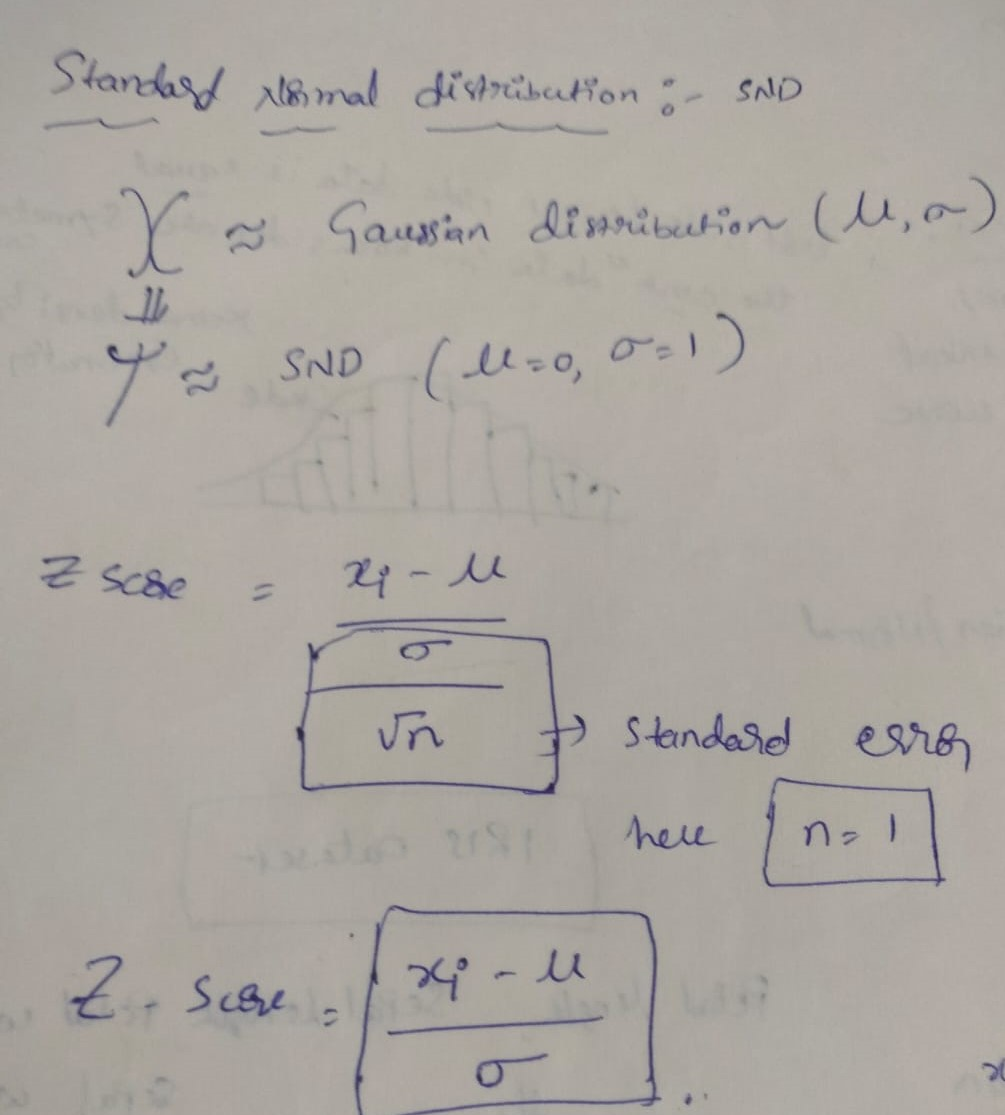 Standard Normal distribution :- SND
X ≈ Gaussian distribution (μ, σ)
⇓
Y ≈ SND (μ=0, σ=1)
Z score = xi - μ
σ
√n → standard error
here n=1
Z - Score = xi - μ
σ